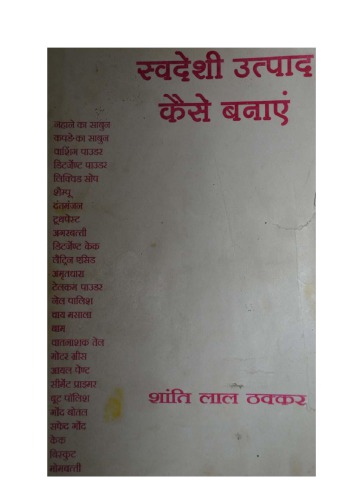 स्वदेशी उत्पाद
कैसे बनाएं
नहाने का साबुन
कपडे का साबुन
वाशिंग पाउडर
डिटर्जेण्ट पाउडर
लिक्विड सोप
शैम्पू
दंतमंजन
टूथपेस्ट
अगरबत्ती
डिटर्जेण्ट केक
लैट्रिन एसिड
अमृतधारा
टेलकम पाउडर
नेल पालिश
चाय मसाला
बाम
वातनाशक तेल
मोटर ग्रीस
आयल पेण्ट
सीमेंट प्राइमर
बूट पॉलिश
गोंद बोतल
सफेद गोंद
केक
बिस्कुट
मोमबत्ती
शांति लाल ठक्कर